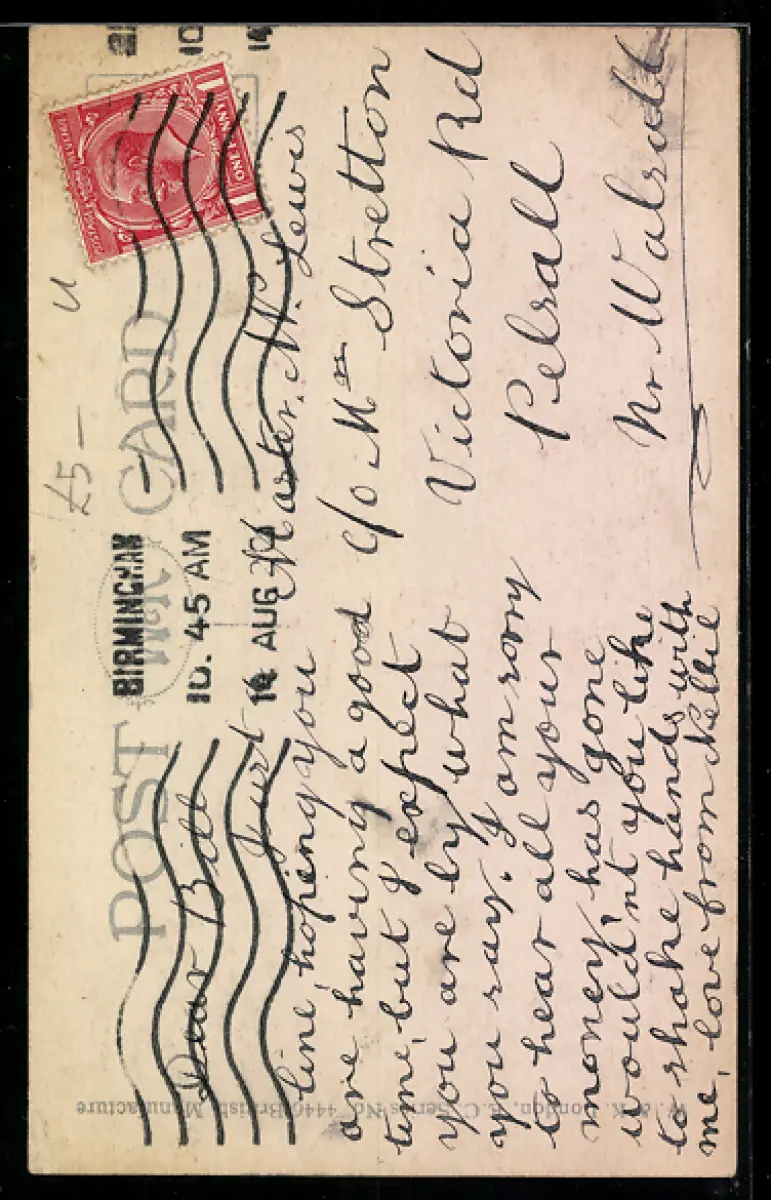 POST CARD
£5 —
BIRMINGHAM
10. 45 AM
14 AUG
ONE PENNY
Dear Bill
Just
line, hoping you
are having a good
time, but I expect
you are by what
you say. I am sorry
to hear all your
money has gone
would'nt you like
to shake hands with
me, love from Nellie
Master. W. Lewis
c/o Mrs Stretton
Victoria Rd
Pelsall
Nr Walsall
London, E.C. Series No. 4446 British Manufacture